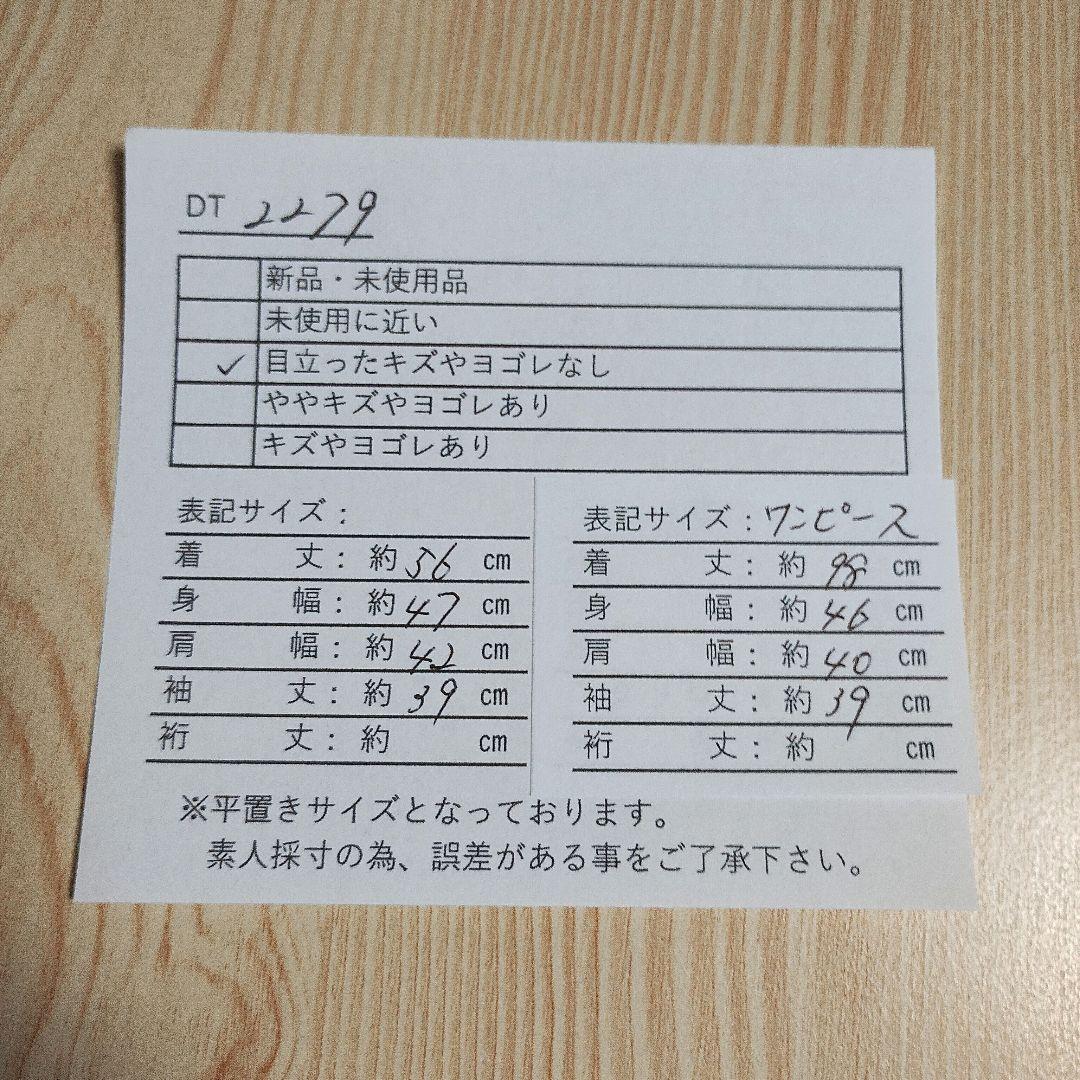 DT 2279
新品・未使用品
未使用に近い
✓ 目立ったキズやヨゴレなし
ややキズやヨゴレあり
キズやヨゴレあり
表記サイズ:
着 丈: 約 56 cm
身 幅: 約 47 cm
肩 幅: 約 42 cm
袖 丈: 約 39 cm
裄 丈: 約 cm
表記サイズ: ワンピース
着 丈: 約 98 cm
身 幅: 約 46 cm
肩 幅: 約 40 cm
袖 丈: 約 39 cm
裄 丈: 約 cm
※平置きサイズとなっております。
素人採寸の為、誤差がある事をご了承下さい。